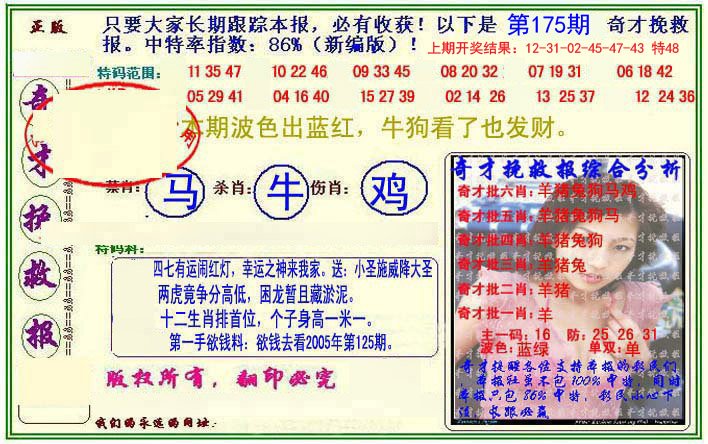 正版
只要大家长期跟踪本报，必有收获！以下是 第175期 奇才挽救
报。中特率指数：86%（新编版）！上期开奖结果：12-31-02-45-47-43 特48
特码范围：
11 35 47 10 22 46 09 33 45 08 20 32 07 19 31 06 18 42
05 29 41 04 16 40 15 27 39 02 14 26 13 25 37 12 24 36
本期波色出蓝红，牛狗看了也发财。
奇
才
护
救
报
禁肖：马 杀肖：牛 伤肖：鸡
特码料：
四七有运闹红灯，幸运之神来我家。送：小圣施威降大圣
两虎竟争分高低，困龙暂且藏淤泥。
十二生肖排首位，个子身高一米一。
第一手欲钱料：欲钱去看2005年第125期。
版权所有，翻印必究
我们的永远的网址：
奇才挽救报综合分析
奇才批六肖：羊猪兔狗马鸡
奇才批五肖：羊猪兔狗马
奇才批四肖：羊猪兔狗
奇才批三肖：羊猪兔
奇才批二肖：羊猪
奇才批一肖：羊
主一码：16 防：25 26 31
波色：蓝绿 单双：单
奇才提醒各位支持本报的彩民们
，本报社虽不包100%中特，同时
本报只包86%中特，彩民小心下
注，长跟必赢